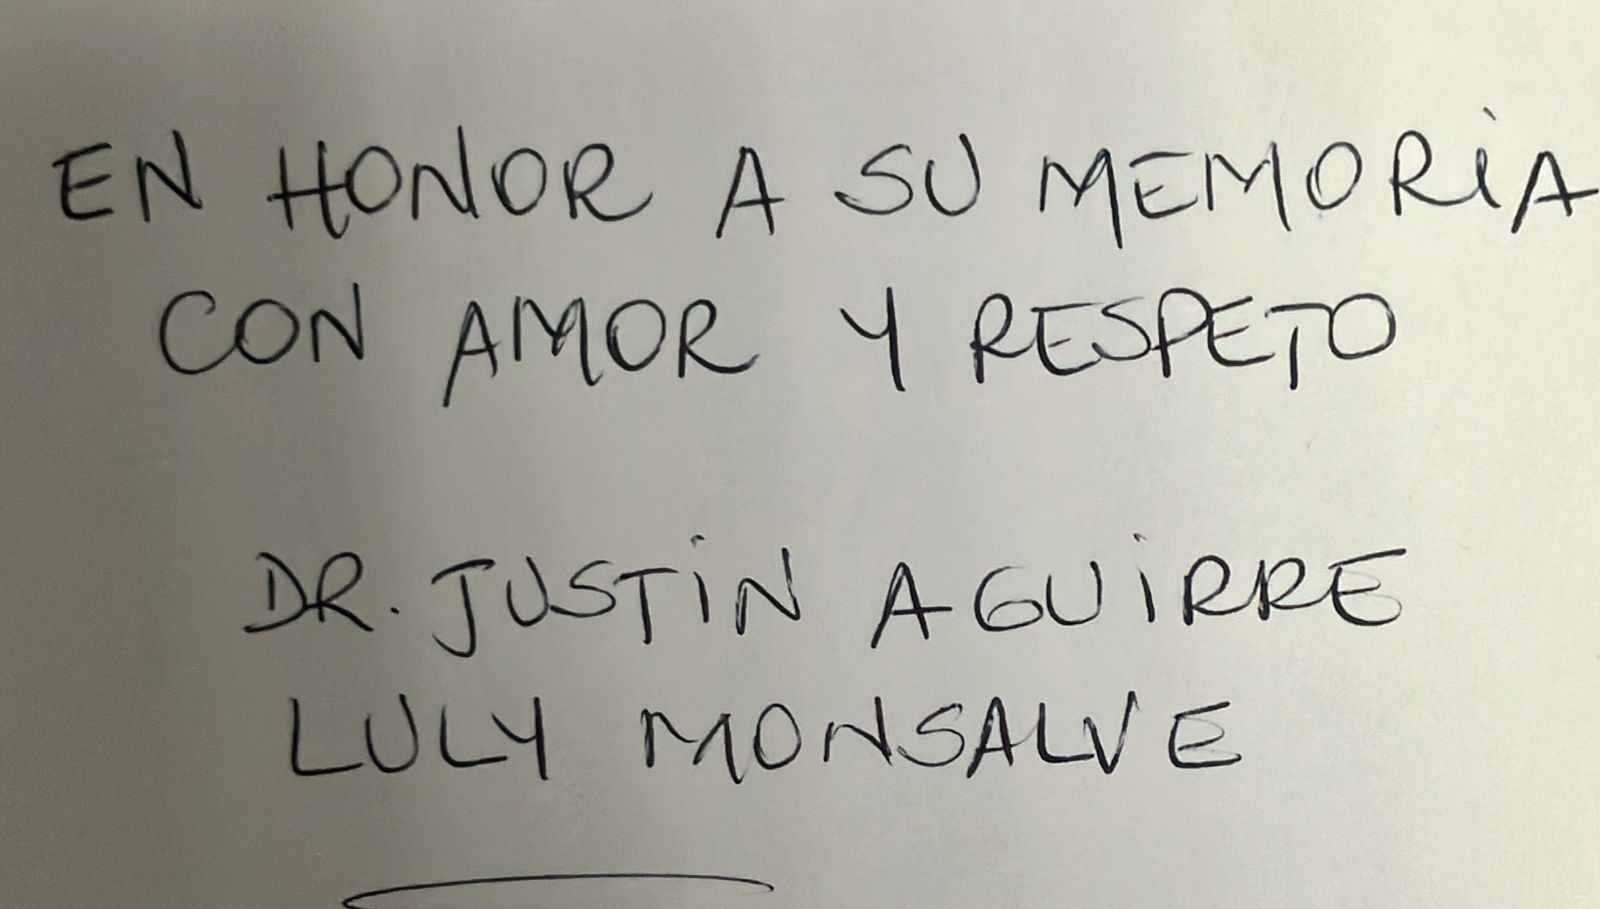 EN HONOR A SU MEMORiA
CON AMOR Y RESPETO
DR. JUSTiN AGUiRRE
LULY MONSALVE